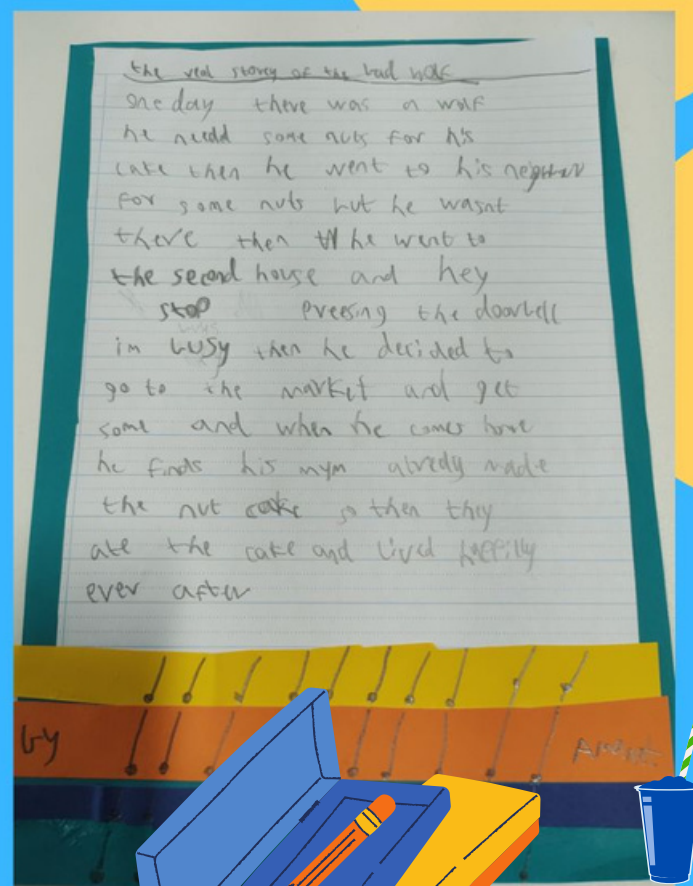 the real storey of the bad wolf
one day there was a wolf
he needd some nuts for his
cake then he went to his
for some nuts but he wasnt
there then he went to
the second house and hey
stop preesing the doorbell
im busy then he decided to
go to the market and get
some and when he comes home
he finds his mym alredy made
the nut cake so then they
ate the cake and lived happilly
ever after
by